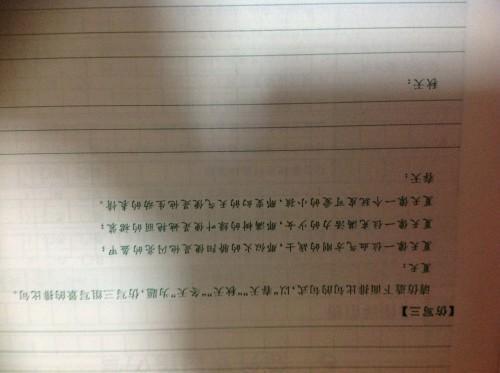 【仿写三】
请仿造下面排比句的句式,以"春天""秋天""冬天"为题,仿写三组写景的排比句。
夏天:
夏天像一位血气方刚的战士,那似火的骄阳便是他闪亮的盔甲;
夏天像一位充满活力的少女,那满树的绿叶便是她艳丽的裙裳;
夏天像一个顽皮可爱的小孩,那变幻的天气便是他生动的表情。
春天:
秋天: